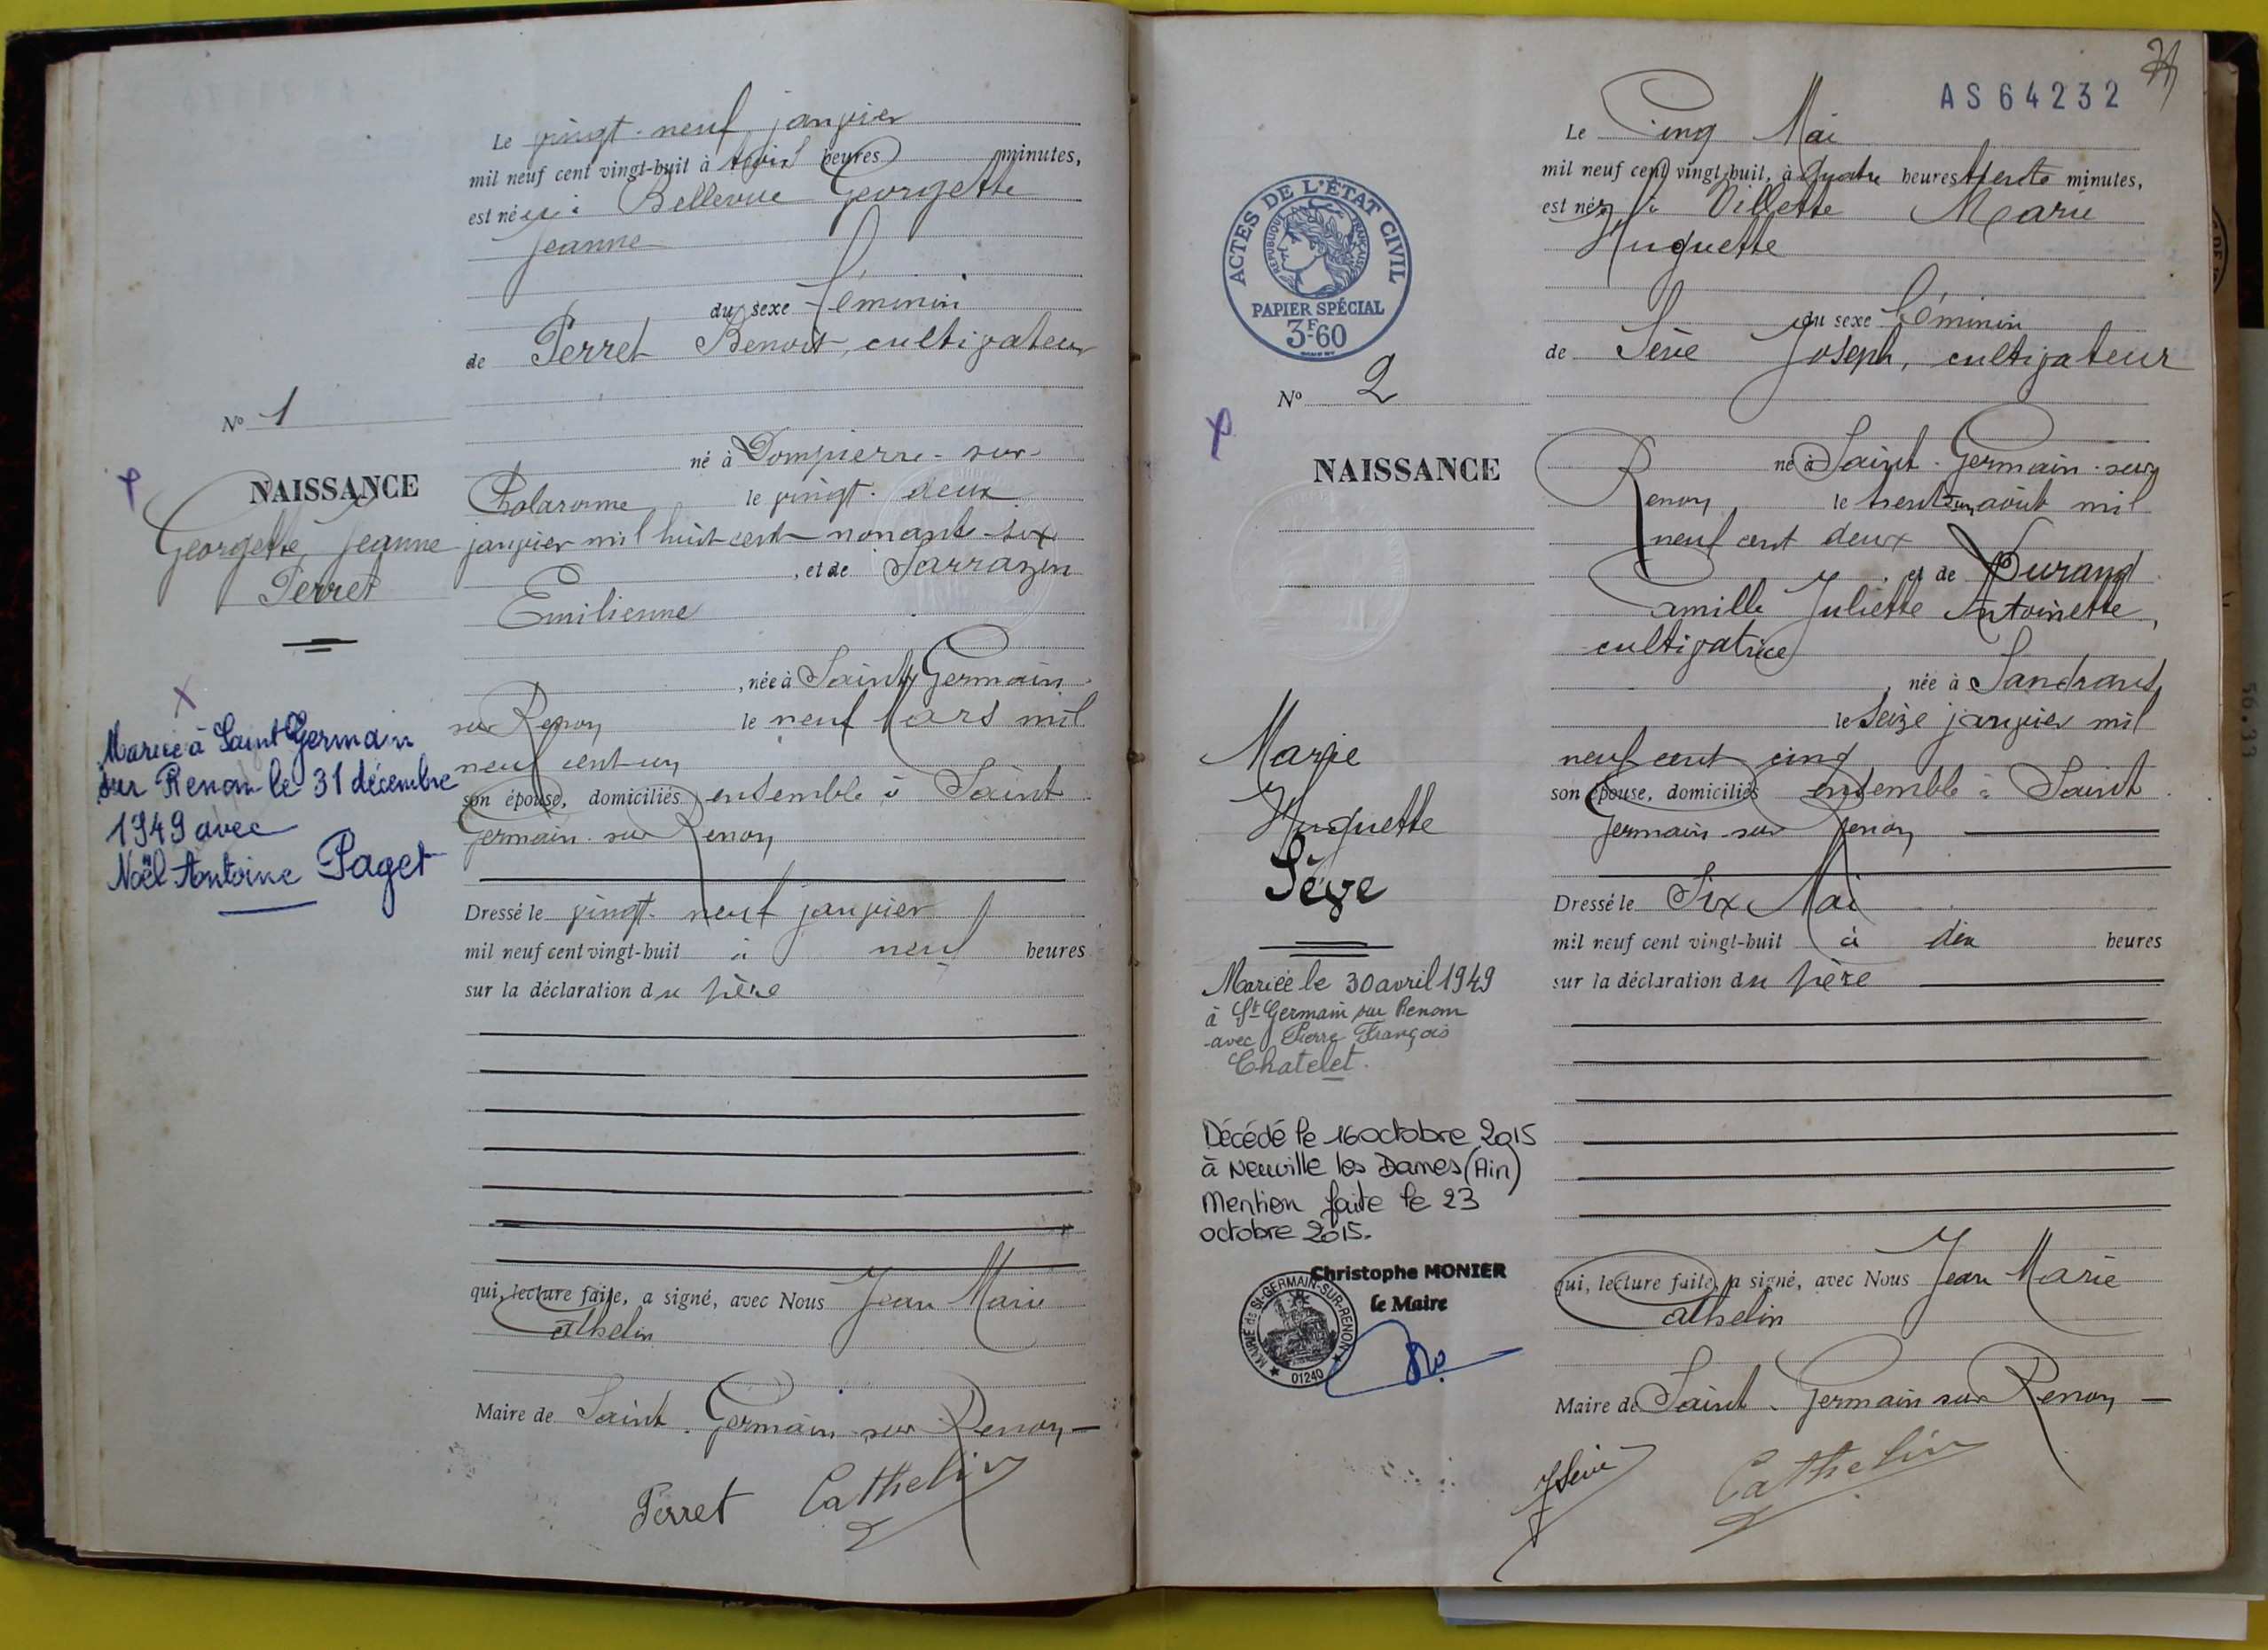 Le vingt-neuf janvier
mil neuf cent vingt-huit à trois heures minutes,
est née à Bellevue Georgette
Jeanne
du sexe féminin
de Perret Benoît, cultivateur
né à Dompierre-sur-
Chalaronne le vingt-deux
janvier mil huit cent nonante-six
, et de Sarrazin
Emilienne
, née à Saint Germain
sur Renon le neuf Mars mil
neuf cent un
son épouse, domiciliés ensemble à Saint
Germain-sur Renon
Dressé le vingt-neuf janvier
mil neuf cent vingt-huit à neuf heures
sur la déclaration du père
qui, lecture faite, a signé, avec Nous Jean Marie
Cathelin
Maire de Saint-Germain-sur Renon
Perret Cathelin
No 1
NAISSANCE
Georgette Jeanne
Perret
Mariée à Saint Germain
sur Renon le 31 décembre
1949 avec
Noël Antoine Paget
AS 64232
Le Cinq Mai
mil neuf cent vingt-huit, à quatre heures trente minutes,
est née à Villette Marie
Huguette
du sexe féminin
de Sève Joseph, cultivateur
né à Saint-Germain-sur
Renon le trente-un août mil
neuf cent deux
, et de Durand
Camille Juliette Antoinette,
cultivatrice
, née à Sandrans
le seize janvier mil
neuf cent cinq
son épouse, domiciliés ensemble à Saint
Germain-sur Renon
Dressé le Six Mai
mil neuf cent vingt-huit à dix heures
sur la déclaration du père
qui, lecture faite, a signé, avec Nous Jean Marie
Cathelin
Maire de Saint-Germain sur Renon
JSève Cathelin
ACTES DE L'ÉTAT CIVIL
RÉPUBLIQUE FRANÇAISE
PAPIER SPÉCIAL
3F60
No 2
NAISSANCE
Marie
Huguette
Sève
Mariée le 30 avril 1949
à St Germain sur Renom
avec Pierre François
Chatelet.
Décédé le 16 octobre 2015
à Neuville les Dames (Ain)
Mention faite le 23
octobre 2015.
Christophe MONIER
le Maire
MAIRIE de St-GERMAIN-SUR-RENON
01240